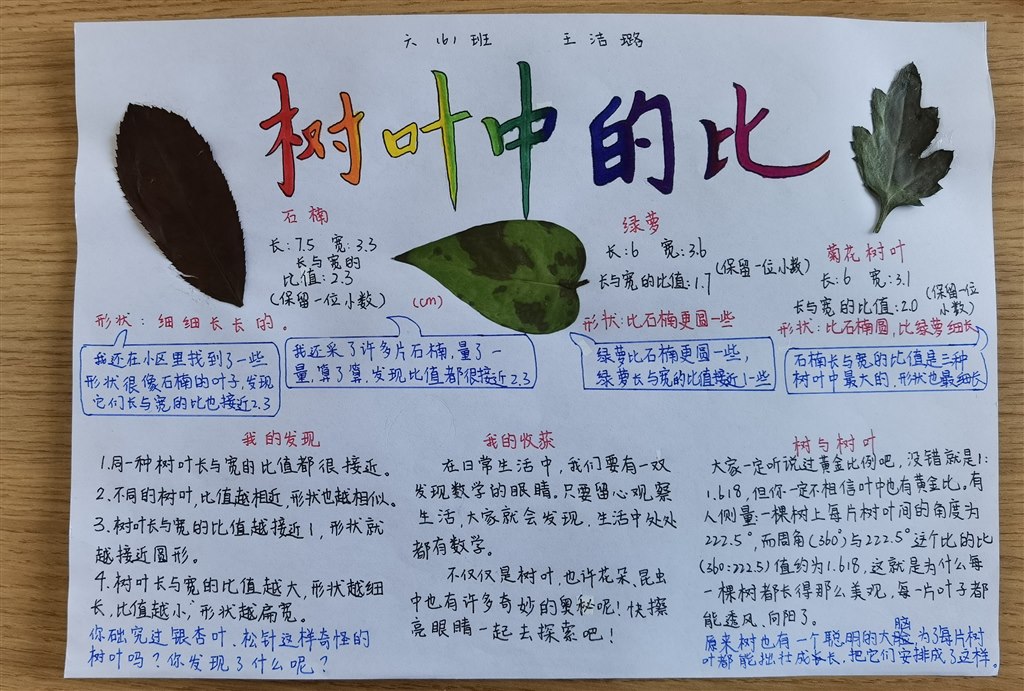 六（6）班 王洁璐
树叶中的比
石楠
长：7.5 宽：3.3
长与宽的
比值：2.3
（保留一位小数）
(cm)
形状：细细长长的。
绿萝
长：6 宽：3.6
长与宽的比值：1.7
（保留一位小数）
形状：比石楠更圆一些
菊花树叶
长：6 宽：3.1
长与宽的比值：2.0
（保留一位
小数）
形状：比石楠圆，比绿萝细长
我还在小区里找到了一些
形状很像石楠的叶子，发现
它们长与宽的比也接近2.3
我还采了许多片石楠，量了一
量，算了算，发现比值都很接近2.3
绿萝比石楠更圆一些，
绿萝长与宽的比值接近1一些
石楠长与宽的比值是三种
树叶中最大的，形状也最细长
我的发现
1.同一种树叶长与宽的比值都很接近。
2.不同的树叶，比值越相近，形状也越相似。
3.树叶长与宽的比值越接近1，形状就
越接近圆形。
4.树叶长与宽的比值越大，形状越细
长，比值越小，形状越扁宽。
你研究过银杏叶、松针这样奇怪的
树叶吗？你发现了什么呢？
我的收获
在日常生活中，我们要有一双
发现数学的眼睛。只要留心观察
生活，大家就会发现，生活中处处
都有数学。
不仅仅是树叶，也许花朵、昆虫
中也有许多奇妙的奥秘呢！快擦
亮眼睛一起去探索吧！
树与树叶
大家一定听说过黄金比例吧，没错就是1:
1.618，但你一定不相信叶中也有黄金比。有
人侧量：一棵树上每片树叶间的角度为
222.5°，而周角（360°）与222.5°这个比的比
（360:222.5）值约为1.618，这就是为什么每
一棵树都长得那么美观，每一片叶子都
能透风、向阳了。
原来树也有一个聪明的大脑，为了每片树
叶都能拙壮成长，把它们安排成了这样。